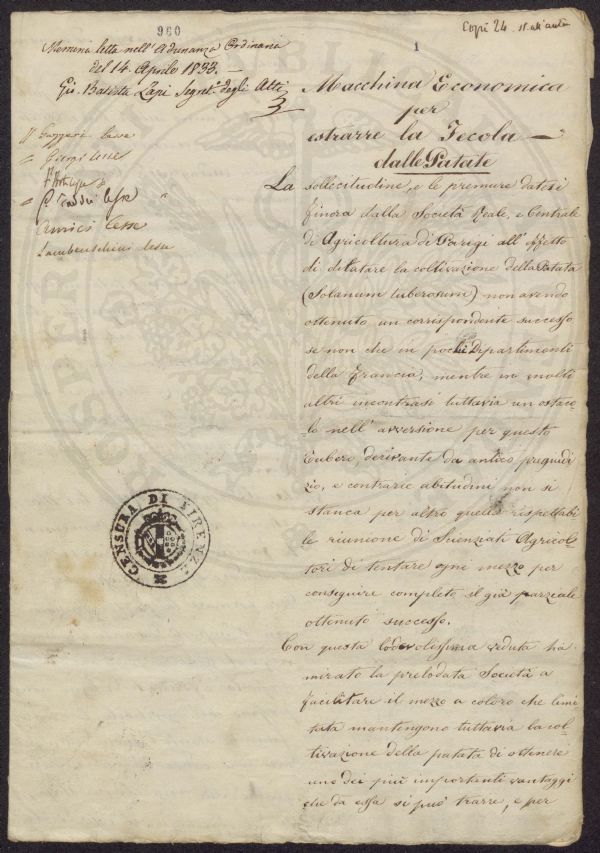 960
Copie 24
1
Memoria letta nell'Adunanza Ordinaria
del 14. Aprile 1833.
Gio. Batista Lapi Segret.° degli Atti
Macchina Economica
per
estrarre la Fecola
dalle Patate
La sollecitudine, e le premure datesi
finora dalla Società Reale, e Centrale
di Agricoltura di Parigi all'effetto
di dilatare la coltivazione della Patata
(Solanum tuberosum) non avendo
ottenuto un corrispondente successo
se non che in pochi Dipartimenti
della Francia, mentre in molti
altri incontrasi tuttavia un ostaco
lo nell'avversione per questo
Tubero, derivante da antico pregiudi
zio, e contrarie abitudini non si
stanca per altro quella rispettabi
le riunione di Scienziati Agricol-
tori di tentare ogni mezzo per
conseguire completo il già parziale
ottenuto successo.
Con questa lodevolissima veduta ha
mirato la prelodata Società a
facilitare il mezzo a coloro che limi
tata mantengono tuttavia la col-
tivazione della patata di ottenere
uno dei più importanti vantaggi
che da essa si può trarre, e per
CENSURA DI FIRENZE